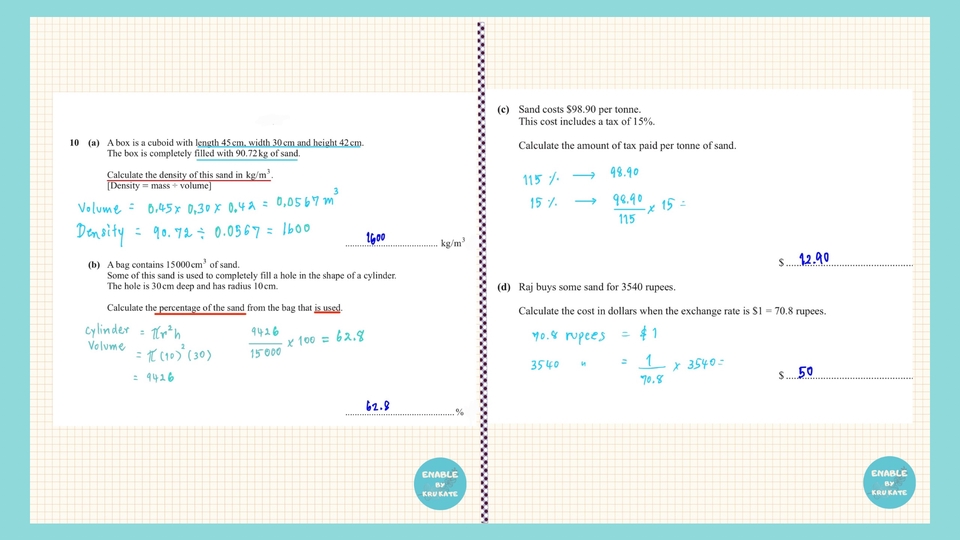 10 (a) A box is a cuboid with length 45 cm, width 30 cm and height 42 cm.
The box is completely filled with 90.72 kg of sand.
Calculate the density of this sand in kg/m³.
[Density = mass ÷ volume]
Volume = 0.45 x 0.30 x 0.42 = 0.0567 m³
Density = 90.72 ÷ 0.0567 = 1600
1600 kg/m³
(b) A bag contains 15 000 cm³ of sand.
Some of this sand is used to completely fill a hole in the shape of a cylinder.
The hole is 30 cm deep and has radius 10 cm.
Calculate the percentage of the sand from the bag that is used.
Cylinder Volume = πr²h
= π(10)²(30)
= 9426
9426/15000 x 100 = 62.8
62.8 %
ENABLE
BY
KRU KATE
(c) Sand costs $98.90 per tonne.
This cost includes a tax of 15%.
Calculate the amount of tax paid per tonne of sand.
115 % → 98.90
15 % → 98.90/115 x 15 =
$ 12.90
(d) Raj buys some sand for 3540 rupees.
Calculate the cost in dollars when the exchange rate is $1 = 70.8 rupees.
70.8 rupees = $1
3540 " = 1/70.8 x 3540 =
$ 50
ENABLE
BY
KRU KATE